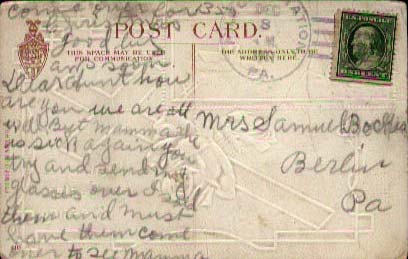 come out for
POST CARD.
THIS SPACE MAY BE USED
FOR COMMUNICATION
THE ADDRESS ONLY TO BE
WRITTEN HERE
DEC
8
STATION
PA.
Dear Aunt how
are you we are all
well But mamma she
is sick again you
try and send my
glasses over I
them and must
have them come
over to see mamma
Mrs Samuel
Berlin
Pa